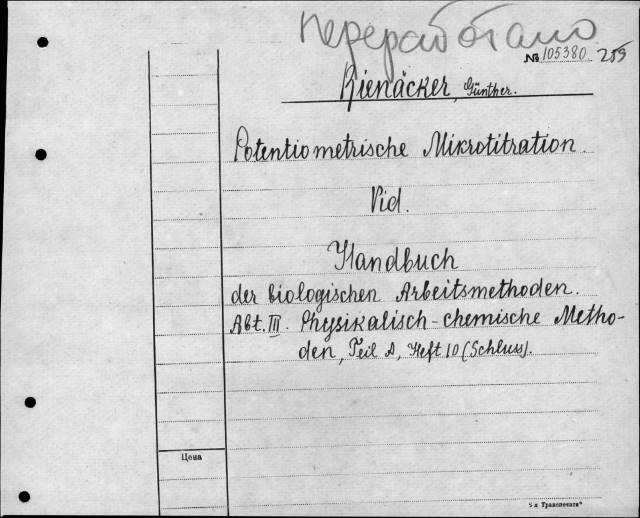 переработано
№ 105380 259
Rienäcker, Günther.
Potentiometrische Mikrotitration.
Vid.
Handbuch
der biologischen Arbeitsmethoden.
Abt. III. Physikalisch-chemische Metho-
den, Teil A, Heft 10 (Schluss).
Цена
5-я Транспечать"